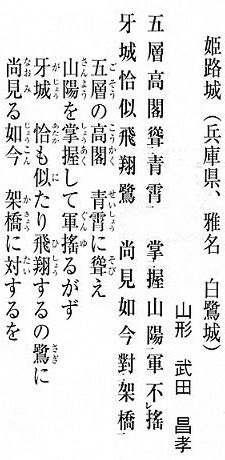 姫路城（兵庫県、雅名　白鷺城）
山形　武田　昌孝
五層高閣聳青霄　掌握山陽軍不搖
牙城恰似飛翔鷺　尚見如今對架橋
五層の高閣　青霄に聳え
山陽を掌握して軍搖るがず
牙城　恰も似たり飛翔するの鷺に
尚見る如今　架橋に対するを